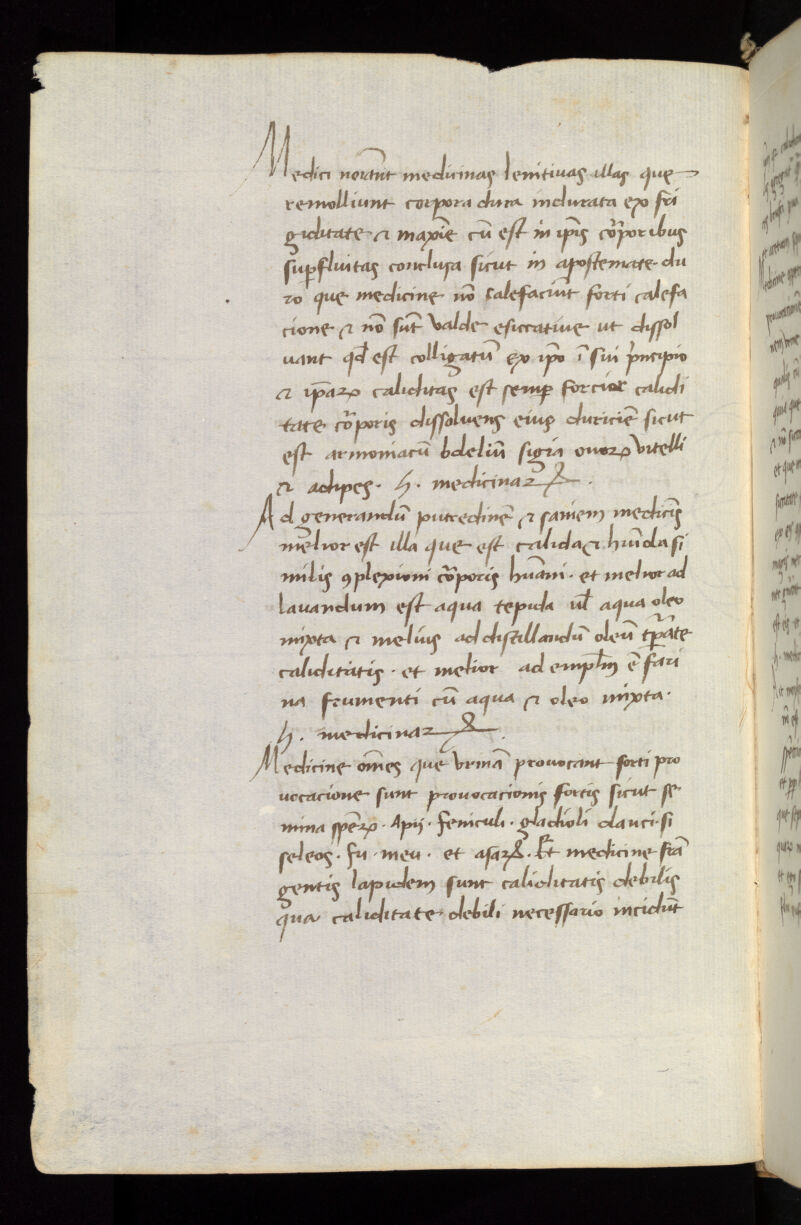 Medici norãnt medicinas lenitivas illas que
remolliunt corpora dura indurata exo fri
giditate ⁊ maxĩe cũ est in ip̃is cor̃poribus
sup̃fluitas conclusa sicut in apostemate du
ro que medicine nõ calefaciũt forti calefa
cione ⁊ nõ sũt valde esiccative ut dissol
vant qd̃ est colligatũ ex ip̃o ĩ sui p̃ncipio
⁊ ip̃aꝝ caliditas est semp̃ forcior calidi
tate cor̃poris dissolvens eius duriciẽ sicut
est armoniacũ bdeliũ sigia ovoꝝ vitelli
⁊ adipes. h. medicinaꝝ
Ad generandũ putredinẽ ⁊ saniem medicĩs
melior est illa que est calida ⁊ hũida si
milis ꝯplexioni cor̃poris hũani. et melior ad
lavandum est aqua tepida ul̃ aqua oleo
mixta ⁊ melius ad distillandũ oleũ tp̃ate
caliditatis. et melior ad emplm̃ ẽ fari
na frumenti cũ aqua ⁊ oleo mixta.
h. medicinaꝝ
Medicine om̃es que urinã provocant forti pro
vocacione sunt provocacionis fortis sicut se
mina sp̃eꝝ. Apij. feniculi. gladioli dauci. si
seleos. fu. meu. et asaꝝ. Et medicine frã
gentis lapidem sunt caliditatis debilis
qua caliditate debili necessario incidũt